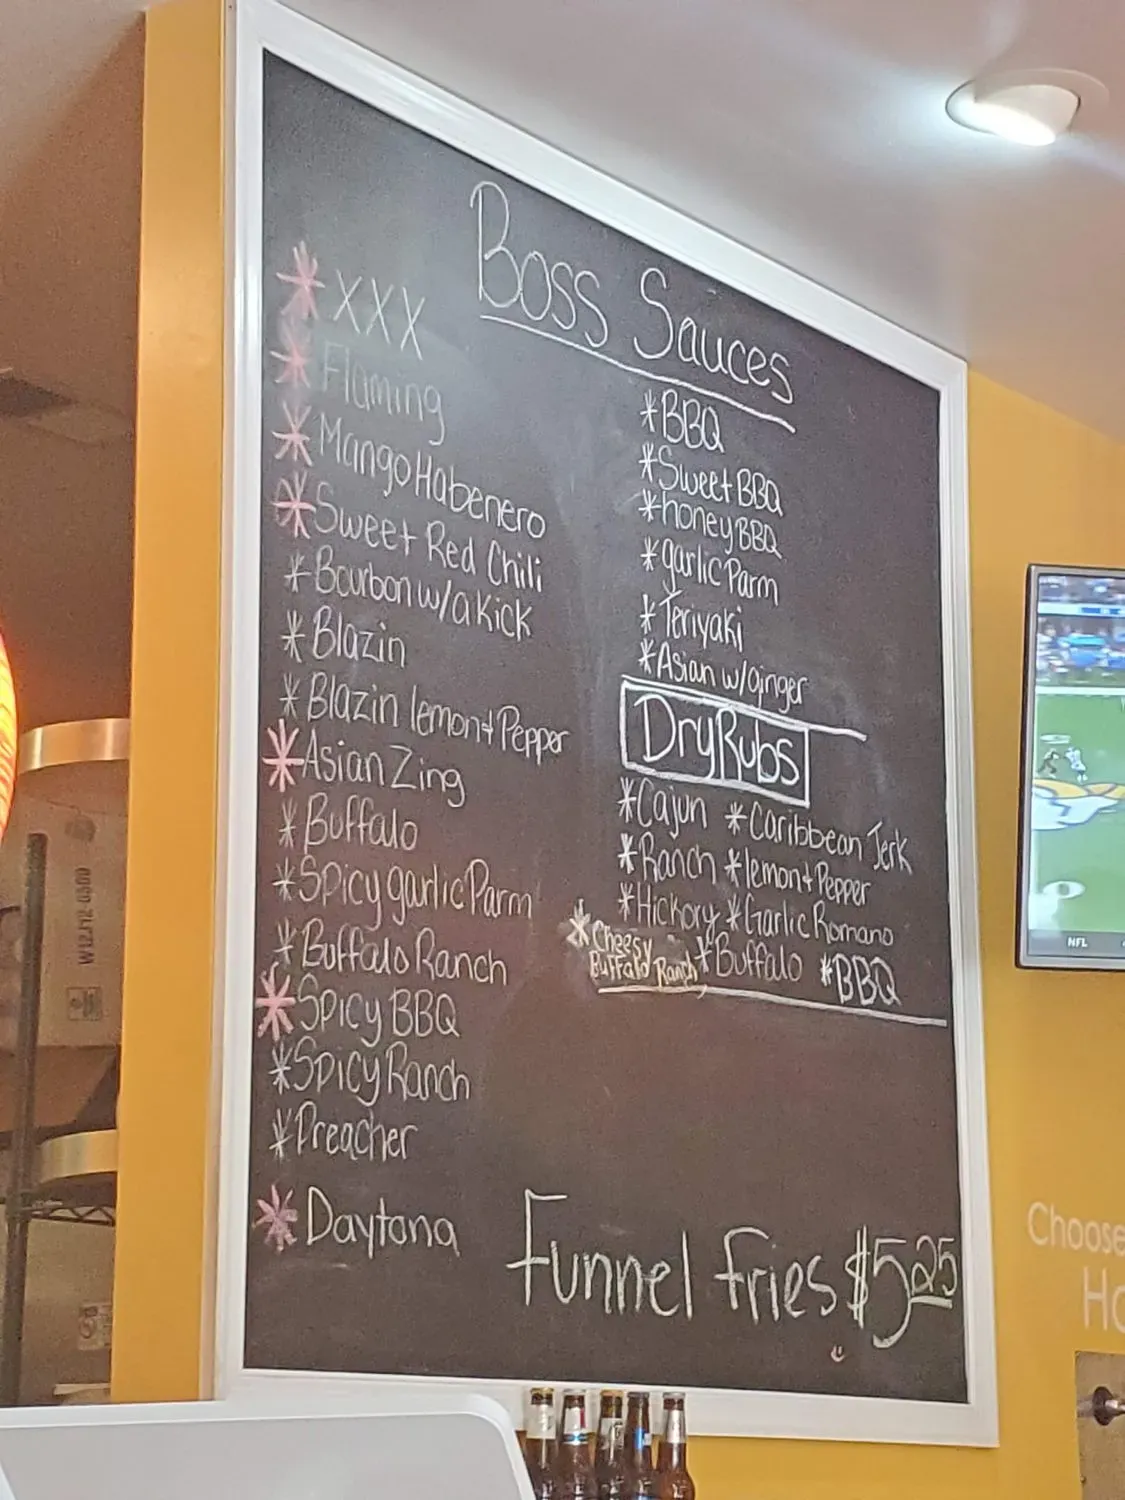 Boss Sauces
*XXX
*Flaming
*Mango Habenero
*Sweet Red Chili
*Bourbon w/a Kick
*Blazin
*Blazin lemon+Pepper
*Asian Zing
*Buffalo
*Spicy garlic Parm
*Buffalo Ranch
*Spicy BBQ
*Spicy Ranch
*Preacher
*Daytona
*BBQ
*Sweet BBQ
*honey BBQ
*garlic Parm
*Teriyaki
*Asian w/ginger
Dry Rubs
*Cajun *Caribbean Jerk
*Ranch *lemon+Pepper
*Hickory *Garlic Romano
*Cheesy
Buffalo Ranch *Buffalo *BBQ
Funnel fries $5.25
W12J12-0500
NFL
Choose